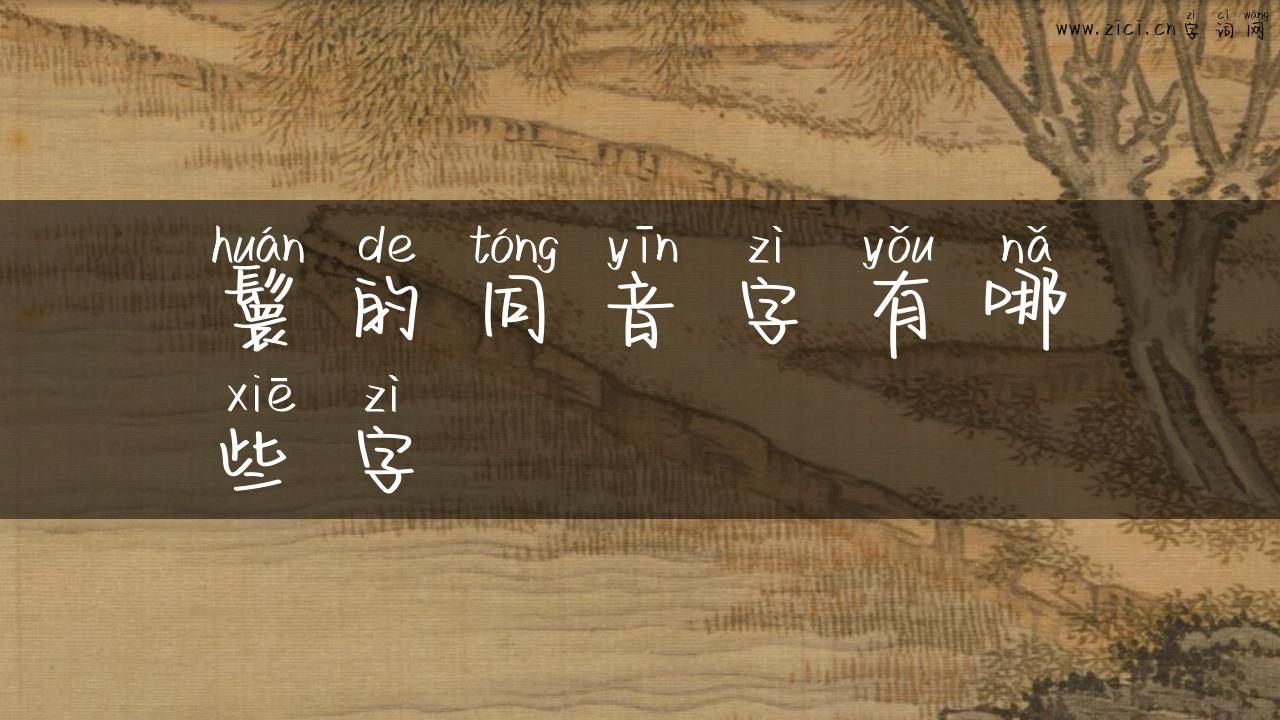 zì cí wǎng
www.zici.cn字 词 网
huán de tóng yīn zì yǒu nǎ
鬟 的 同 音 字 有 哪
xiē zì
些 字